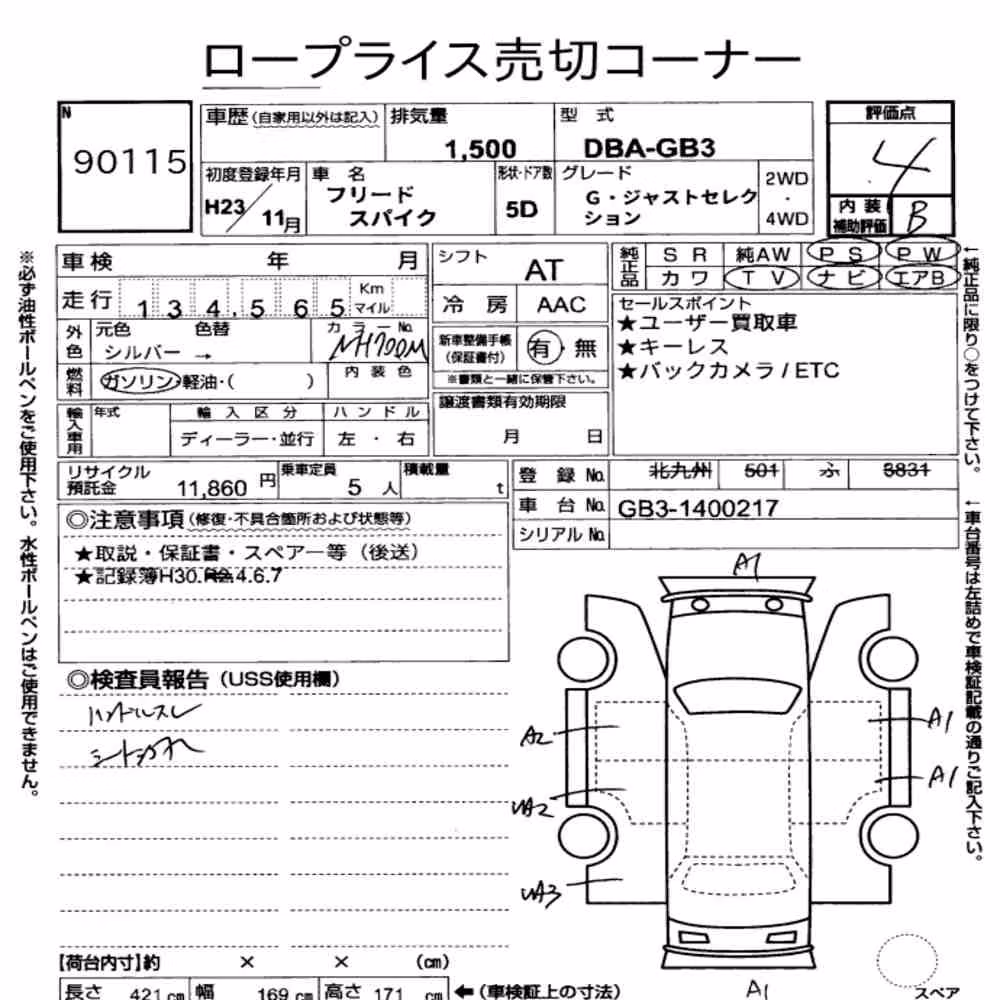 ロープライス売切コーナー
N
90115
車歴 (自家用以外は記入) 排気量 型 式
1,500 DBA-GB3
初度登録年月 車 名 形状・ドア数 グレード
H23/11月 フリード スパイク 5D G・ジャストセレクション 2WD ・ 4WD
評価点
4
内装補助評価 B
車検 年 月
走行 134,565 Km マイル
シフト AT
冷 房 AAC
純正品 SR 純AW PS PW
カワ TV ナビ エアB
外色 元色 色替 カラーNo.
シルバー → NH700M
燃料 ガソリン・軽油・( ) 内装色
新車整備手帳(保証書付) 有・無
※書類と一緒に保管下さい。
セールスポイント
★ユーザー買取車
★キーレス
★バックカメラ/ETC
輸入車用 年式 輸入区分 ハンドル
ディーラー・並行 左・右
譲渡書類有効期限
月 日
リサイクル預託金 11,860円 乗車定員 5人 積載量 t
登録No. 北九州 501 ふ 3831
車台No. GB3-1400217
シリアルNo.
◎注意事項(修復・不具合箇所および状態等)
★取説・保証書・スペアー等(後送)
★記録簿H30.R2 4.6.7
◎検査員報告(USS使用欄)
ハンドルスレ
シートシワ
A1
A2
A1
A1
UA2
UA3
A1
【荷台内寸】約 × × (cm)
長さ 421 cm 幅 169 cm 高さ 171 cm ←(車検証上の寸法)
スペア
※必ず油性ボールペンをご使用下さい。水性ボールペンはご使用できません。
←純正品に限り○をつけて下さい。
←車台番号は左詰めで車検証記載の通りご記入下さい。